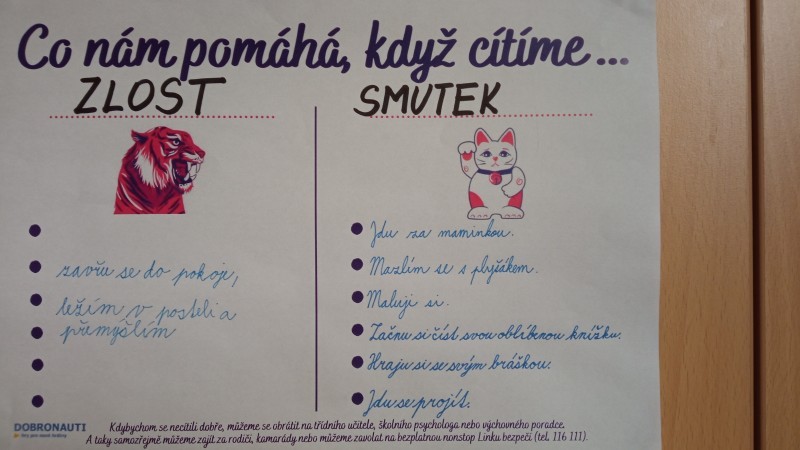 Co nám pomáhá, když cítíme ...
ZLOST
zavřu se do pokoje,
ležím v posteli a
přemýšlím
SMUTEK
Jdu za maminkou.
Mazlím se s plyšákem.
Maluji si.
Začnu si číst svou oblíbenou knížku.
Hraju si se svým bráškou.
Jdu se projít.
DOBRONAUTI
Hry pro lepší životy
Kdybychom se necítili dobře, můžeme se obrátit na třídního učitele, školního psychologa nebo výchovného poradce.
A taky samozřejmě můžeme zajít za rodiči, kamarády nebo můžeme zavolat na bezplatnou nonstop Linku bezpečí (tel. 116 111).